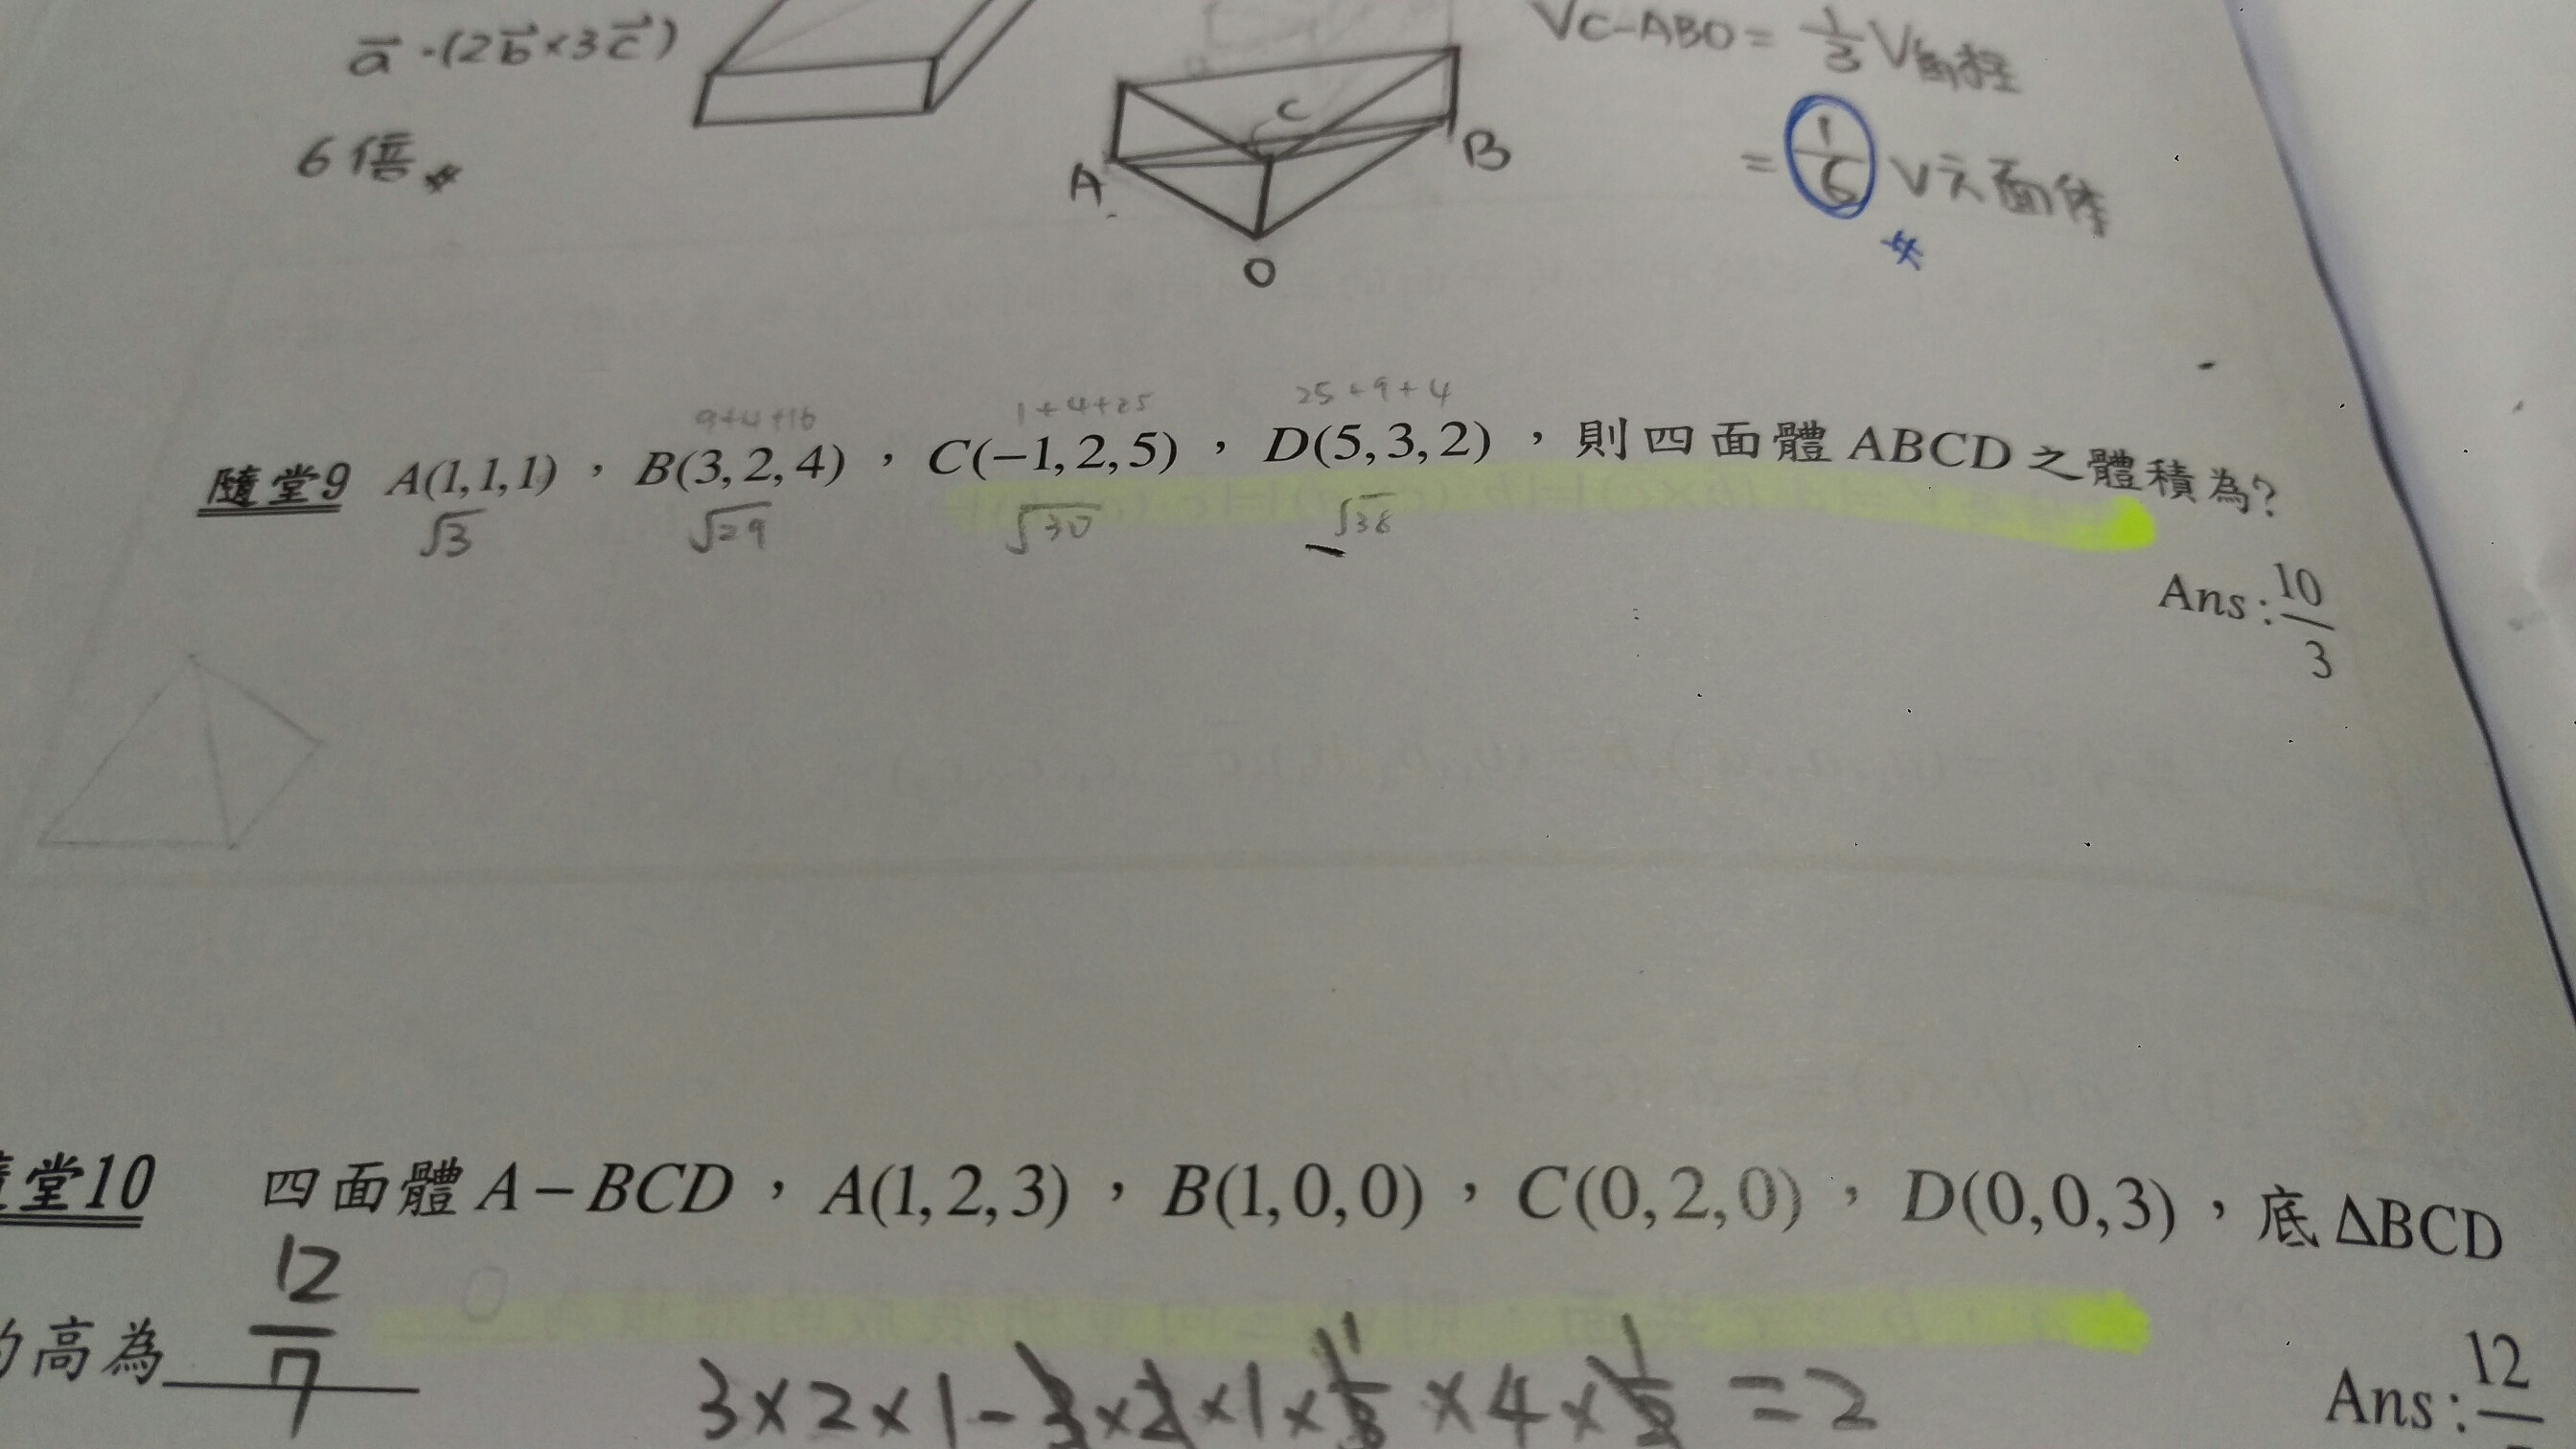 a⃗·(2b⃗×3c⃗)
6倍
C
A
B
O
VC-ABO = 1/3 V角柱
= 1/6 V六面体
9+4+16
1+4+25
25+9+4
隨堂9 A(1,1,1)，B(3,2,4)，C(−1,2,5)，D(5,3,2)，則四面體ABCD之體積為?
√3
√29
√30
√38
Ans:10/3
堂10 四面體A−BCD，A(1,2,3)，B(1,0,0)，C(0,2,0)，D(0,0,3)，底ΔBCD
的高為 12/7
3×2×1-3×2×1×1/3×4×1/2=2
Ans:12